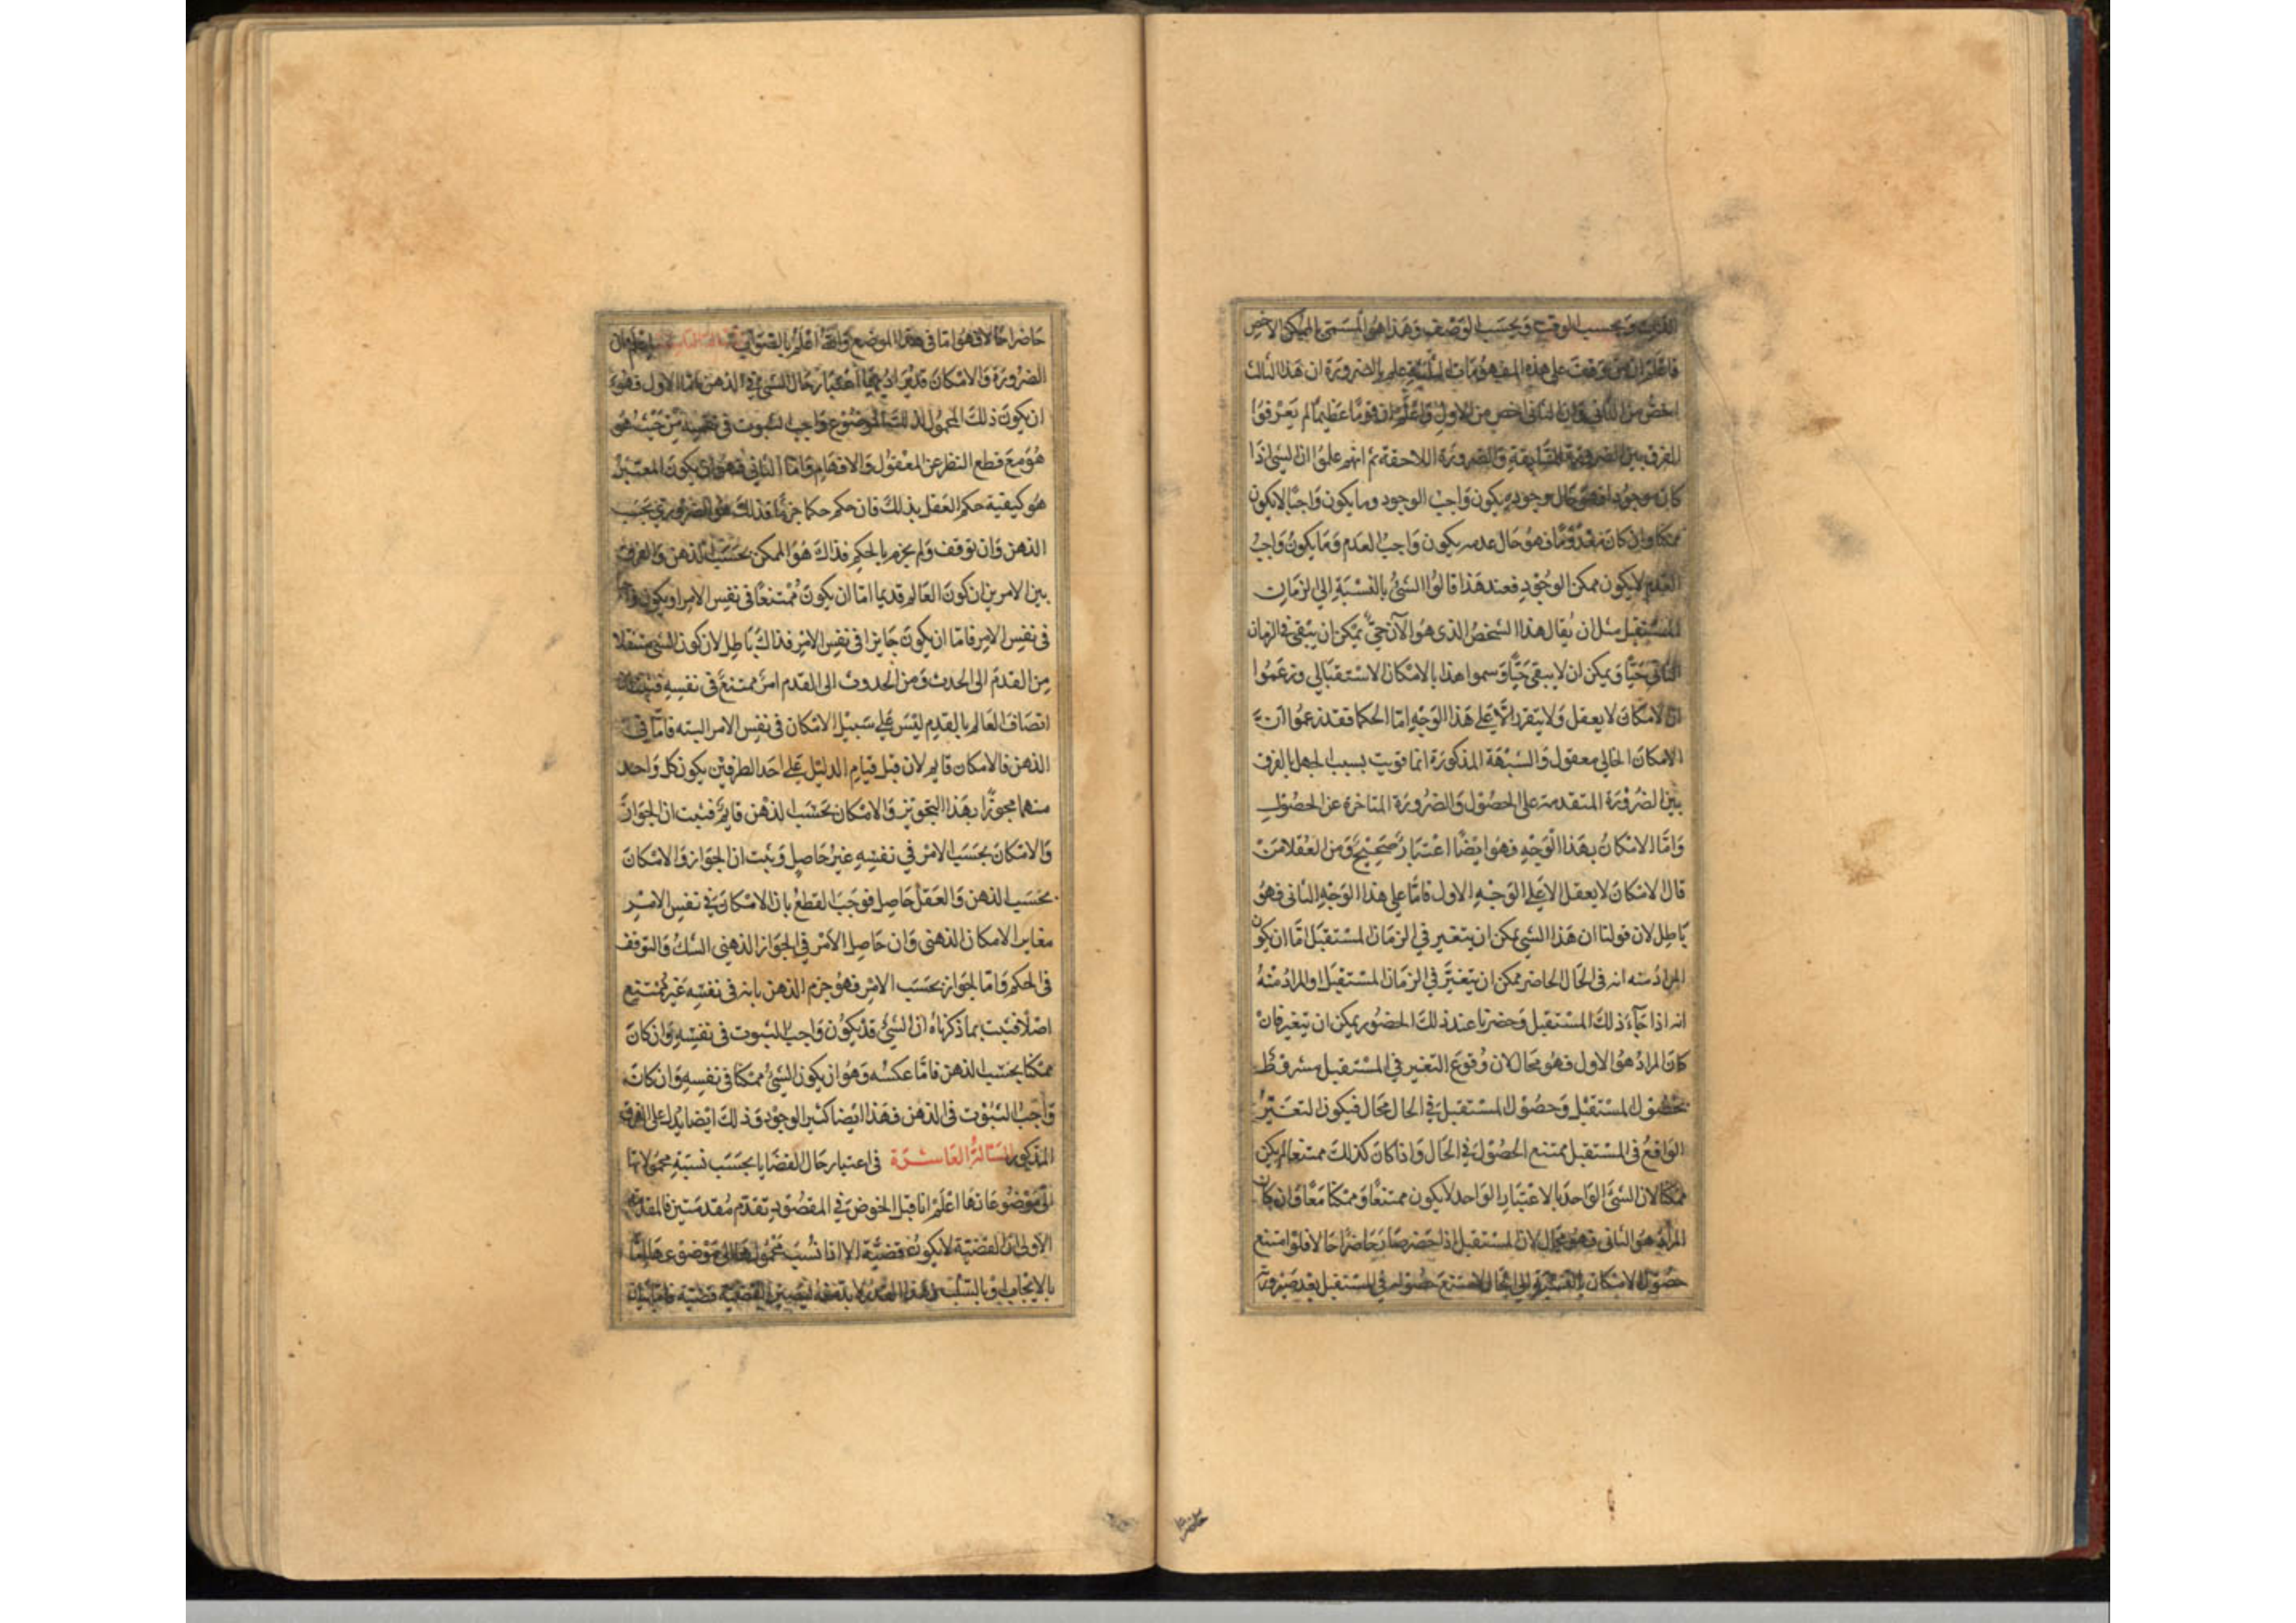 الذات وبحسب الوقت وبحسب الوصف وهذا هو المسمى بالممكن الاخص
فاعلم ان من وقف على هذه المفهومات الثلثة علم بالضرورة ان هذا الثالث
اخص من الثاني وان الثاني اخص من الاول واعلم ان قوما عظيما لم يعرفوا
الفرق بين الضرورة السابقة والضرورة اللاحقة ثم انهم علموا ان الشي اذا
كان موجودا فهو حال وجوده يكون واجب الوجود وما يكون واجبا لا يكون
ممكنا وان كان معدوما فهو حال عدمه يكون واجب العدم وما يكون واجب
العدم لا يكون ممكن الوجود فعند هذا قالوا الشئ بالنسبة الى الزمان
المستقبل مثل ان يقال هذا الشخص الذى هو الآن حي يمكن ان يبقى في الزمان
الثاني حيا ويمكن ان لا يبقى حيا وسموا هذا بالامكان الاستقبالي وزعموا
ان الامكان لا يعقل ولا يتقرر الا على هذا الوجه اما الحكما فقد زعموا ان
الامكان الحالي معقول والشبهة المذكورة انما قويت بسبب الجهل بالفرق
بين الضرورة المتقدمة على الحصول والضرورة المتاخرة عن الحصول
واما الامكان بهذا الوجه فهو ايضا اعتبار صحيح ومن العقلا من
قال الامكان لا يعقل الا على الوجه الاول فاما على هذا الوجه الثاني فهو
باطل لان قولنا ان هذا الشي يمكن ان يتغير في الزمان المستقبل اما ان يكون
المراد منه انه في الحال الحاضر ممكن ان يتغير في الزمان المستقبل او المراد منه
انه اذا جاء ذلك المستقبل وحضر فاعند ذلك الحضور يمكن ان يتغير فان
كان المراد هو الاول فهو محال لان وقوع التغير في المستقبل مشروط
بحصول المستقبل وحصول المستقبل في الحال محال فيكون التغير
الواقع في المستقبل ممتنع الحصول في الحال واذا كان كذلك ممتنعا لم يكن
ممكنا لان الشئ الواحد بالاعتبار الواحد لا يكون ممتنعا وممكنا معا وان كان
المراد هو الثاني فهو محال لان المستقبل اذا حضر صار حاضرا حالا فلو امتنع
حصول الامكان بالنسبة الى الحال لامتنع حصوله في المستقبل بعد صيرورته
حاضرا
حاضرا حالا فهو اما في هذا الموضع والله اعلم بالصواب اعلم ان
الضرورة والامكان قد يراد بهما اعتبار حال الشي في الذهن اما الاول فهو
ان يكون ذلك المحمول لذلك الموضوع واجب الثبوت في نفسه من حيث هو
هو مع قطع النظر عن العقول والافهام واما الثاني فهو ان يكون المعتبر
هو كيفية حكم العقل بذلك فان حكم حكما جزما فذلك هو الضروري بحسب
الذهن وان توقف ولم يجزم بالحكم فذاك هو الممكن بحسب الذهن والفرق
بين الامرين ان كون العالم قديما اما ان يكون ممتنعا في نفس الامر او يكون واجبا
في نفس الامر فاما ان يكون جايزا في نفس الامر فذاك باطل لان كون الشي منتقلا
من القدم الى الحدث ومن الحدوث الى القدم امر ممتنع في نفسه فثبت ان
اتصاف العالم بالقدم ليس على سبيل الامكان في نفس الامر البته فاما في
الذهن فالامكان قايم لان قبل قيام الدليل على احد الطرفين يكون كل واحد
منهما مجوزا بهذا التجويز والامكان بحسب الذهن قايم فثبت ان الجواز
والامكان بحسب الامر في نفسه غير حاصل وثبت ان الجواز والامكان
بحسب الذهن والعقل حاصل فوجب القطع بان الامكان في نفس الامر
مغاير الامكان الذهني وان حاصل الامر في الجواز الذهني الشك والتوقف
في الحكم واما الجواز بحسب الامر فهو جزم الذهن بانه في نفسه غير ممتنع
اصلا فثبت بما ذكرناه ان الشئ قد يكون واجب الثبوت في نفسه وان كان
ممكنا بحسب الذهن فاما عكسه وهو ان يكون الشئ ممكنا في نفسه وان كان
واجب الثبوت في الذهن فهذا ايضا كثير الوجود وذلك ايضا يدل على الفرق
المذكور المسالة العاشرة في اعتبار حال القضايا بحسب نسبة محمولاتها
الى موضوعاتها اعلم انا قبل الخوض في المقصود نقدم مقدمتين فالمقدمة
الاولى ان القضية لا يكون قضية الا اذا نسب محمولها الى موضوعها اما
بالايجاب او بالسلب القضية قضية